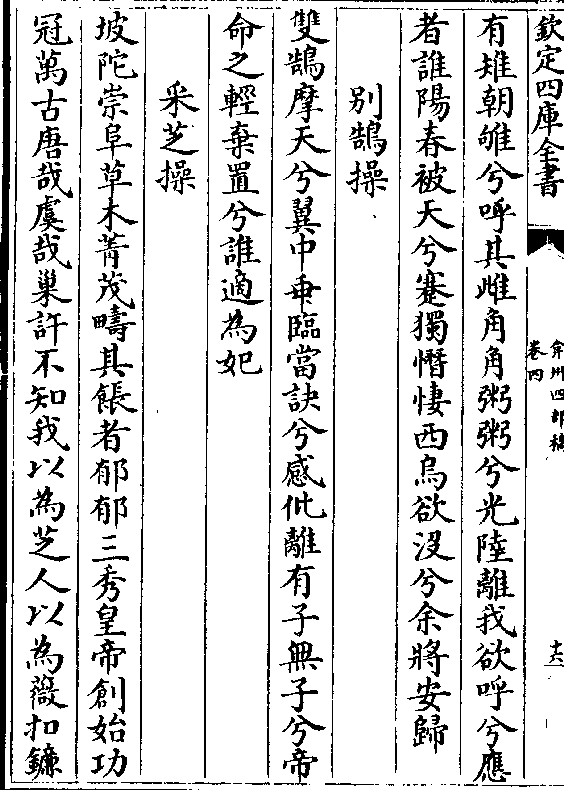 欽定四庫全書
弇州四部稿
卷四
十六
有雉朝雊兮呼其雌角角粥粥兮光陸離我欲呼兮應
者誰陽春被天兮蹇獨憯悽西烏欲沒兮余將安歸
別鵠操
雙鵠摩天兮翼中垂臨當訣兮感仳離有子無子兮帝
命之輕棄置兮誰適為妃
采芝操
坡陀崇阜草木菁茂疇其餦者郁郁三秀皇帝創始功
冠萬古唐哉虞哉巢許不知我以為芝人以為薇扣鐮